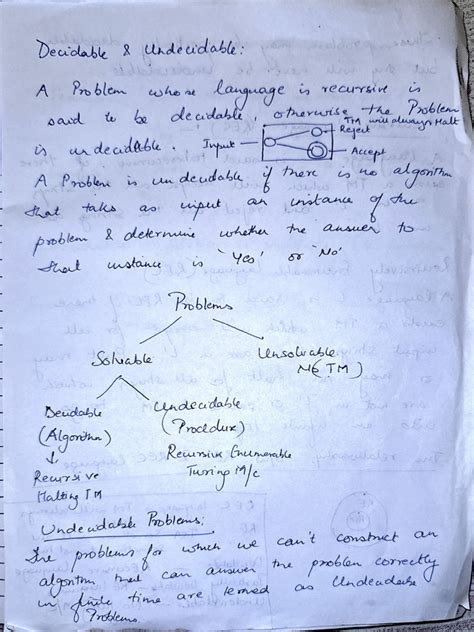 Decidable & Undecidable:
A Problem whose language is recursive is
said to be decidable, otherwise the Problem
TM will always Halt
is undecidable. Input
Reject
Accept
A Problem is undecidable if there is no algorithm
that takes as input an instance of the
problem & determine whether the answer to
that instance is 'Yes' or 'No'
Problems
Solvable
Unsolvable
TM)
Decidable
(Algorithm)
Undecidable
(Procedure)
Recursive
Halting TM
Recursive Enumerable
Turing M/c
Undecidable Problems:
The problems for which we can't construct an
algorithm that can answer the problem correctly
in finite time are termed as Undecidable
Problems.